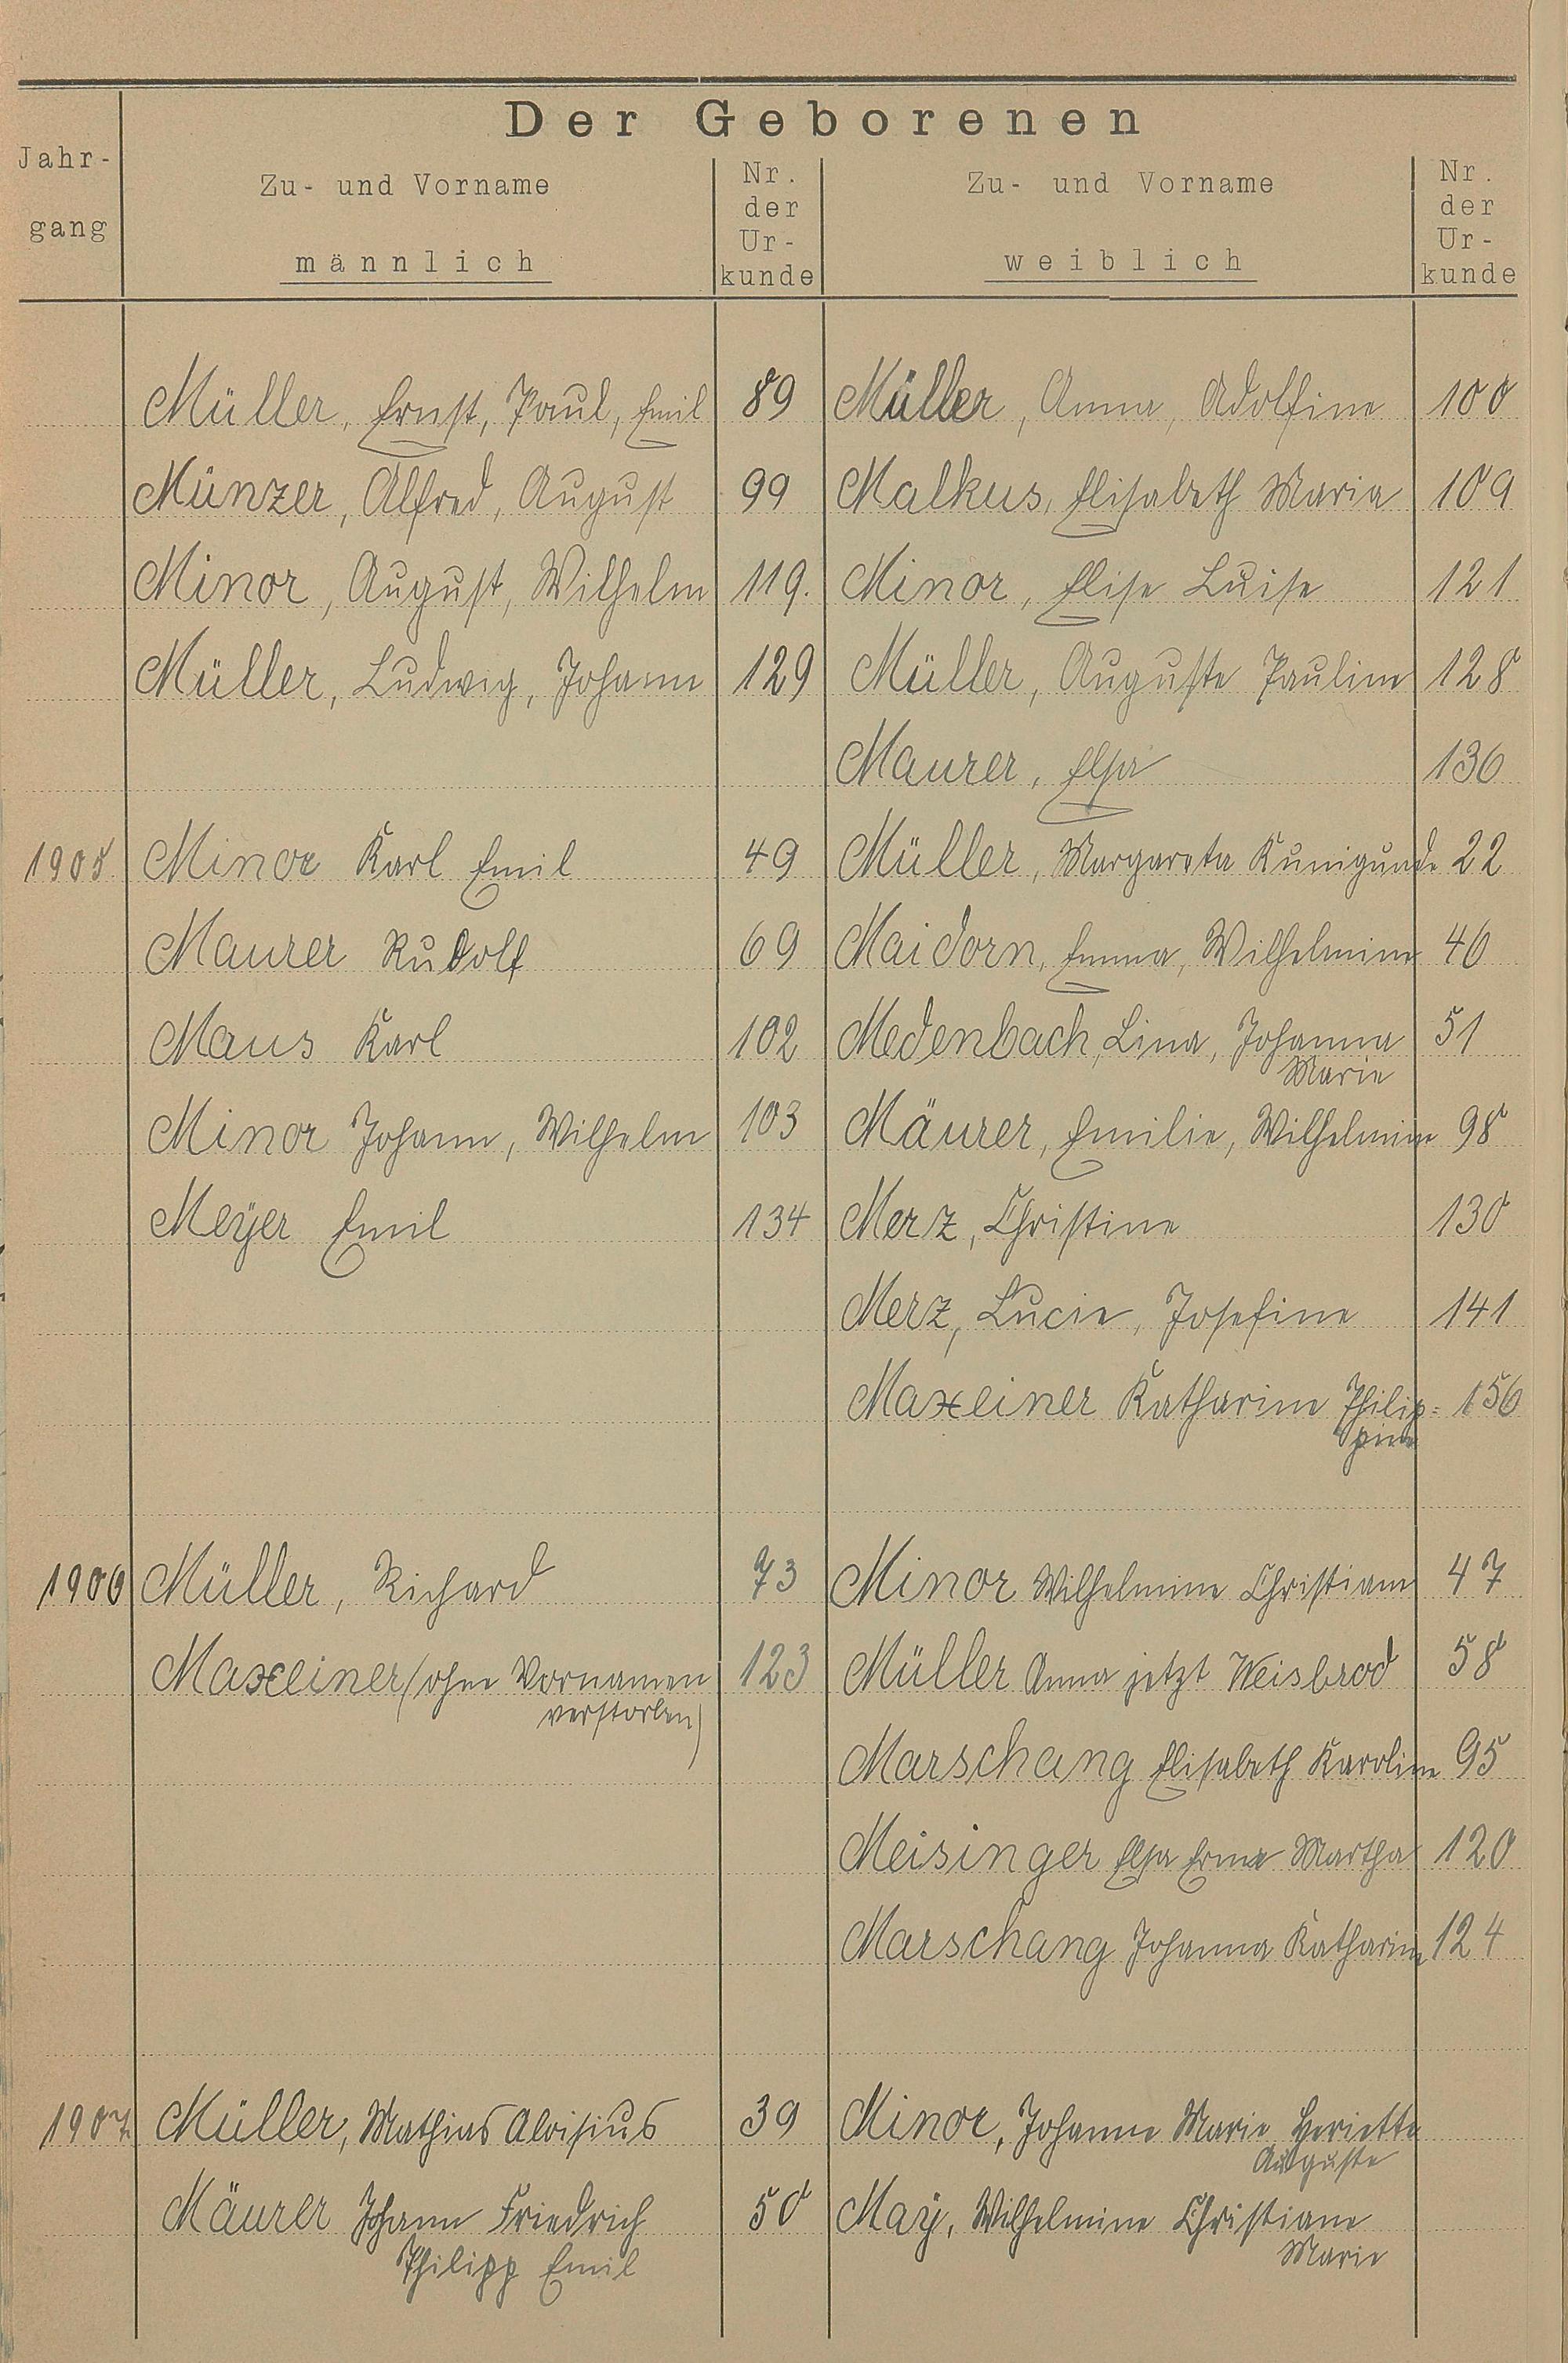 Der Geborenen
Jahr-
gang
Zu- und Vorname
männlich
Nr.
der
Ur-
kunde
Zu- und Vorname
weiblich
Nr.
der
Ur-
kunde
Müller, Ernst, Paul, Emil 89 Müller, Anna, Adolfine 100
Münzer, Alfred, August 99 Malkus, Elisabeth Maria 109
Minor, August, Wilhelm 119. Minor, Elise Luise 121
Müller, Ludwig, Johann 129 Müller, Auguste Pauline 128
Maurer, Elsa 136
1905 Minor Karl Emil 49 Müller, Margareta Kunigunde 22
Maurer Rudolf 69 Maidorn, Emma, Wilhelmine 46
Maus Karl 102 Medenbach, Lina, Johanna 51
Marie
Minor Johann, Wilhelm 103 Mäurer, Emilie, Wilhelmine 98
Meÿer Emil 134 Merz, Christine 130
Merz, Lucie, Josefine 141
Maxeiner Katharine Philip= 156
pine
1906 Müller, Richard 73 Minor Wilhelmine Christiane 47
Maxeiner (ohne Vornamen 123 Müller Anna jetzt Weisbrod 58
verstorben)
Marschang Elisabeth Karoline 95
Meisinger Elsa Erna Martha 120
Marschang Johanna Katharina 124
1907 Müller, Mathias Aloisius 39 Minor, Johanne Marie Heriette
Auguste
Mäurer Johann Friedrich 50 Maÿ, Wilhelmine Christiane
Philipp Emil Marie